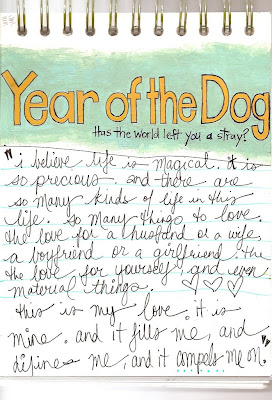 Year of the Dog
Has the world left you a stray?
"i believe life is magical. it is
so precious. and there are
so many kinds of life in this
life. so many things to love.
the love for a husband or a wife,
a boyfriend or a girlfriend. the
the love for yourself and even
material things.
this is my love. it is
mine. and it fills me, and
defines me, and it compels me on."